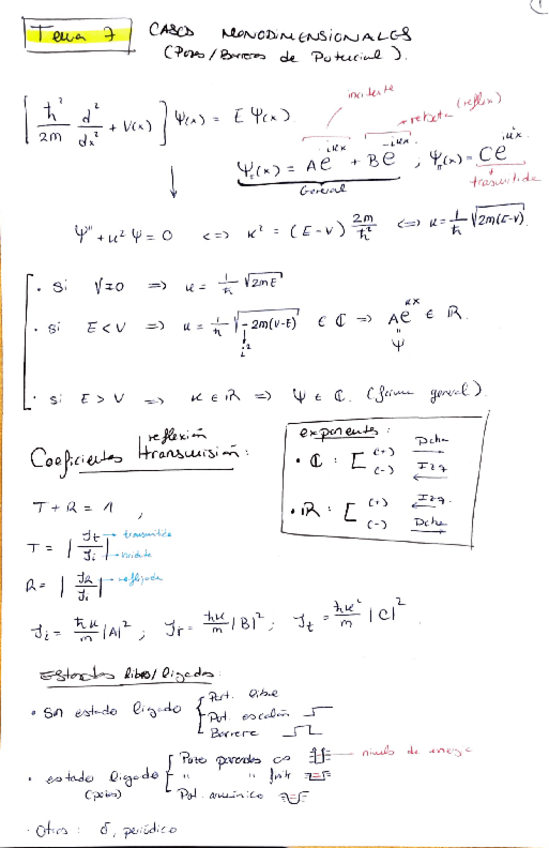 1
Tema 7 CASOS MONODIMENSIONALES
(Pozos/Barreras de Potencial).
[ħ²/2m d²/dx² + V(x)] Ψ(x) = E Ψ(x).
incidente
retrata (reflex)
Ψ_I(x) = A e^{iκx} + B e^{-iκx} , Ψ_II(x) = C e^{iκ'x}
General
trasmitida
Ψ'' + κ² Ψ = 0 <=> κ² = (E - V) 2m/ħ² <=> κ = 1/ħ √2m(E-V)
· Si V=0 => κ = 1/ħ √2mE
· si E < V => κ = 1/ħ √-2m(V-E) ∈ ℂ => A e^{κx} ∈ ℝ.
i²
"
Ψ
· si E > V => κ ∈ ℝ => Ψ ∈ ℂ. (forma general).
reflexión
Coeficientes transmisión:
exponentes:
· ℂ : [ (+) Dcha
(-) Izq
· ℝ : [ (+) Izq.
(-) Dcha
T + R = 1 ,
T = |Jt/Ji| transmitida
incidente
R = |JR/Ji| reflejada
Ji = ħκ/m |A|² ; Jr = ħκ/m |B|² ; Jt = ħκ'/m |C|²
Estados libres/ligados:
· Sin estado ligado { Part. libre
Pot. escalón
Barrera
· estado ligado { Pozo paredes ∞ niveles de energía
(pozos) " " finit
Pot. armónico
· Otros : δ, periódico